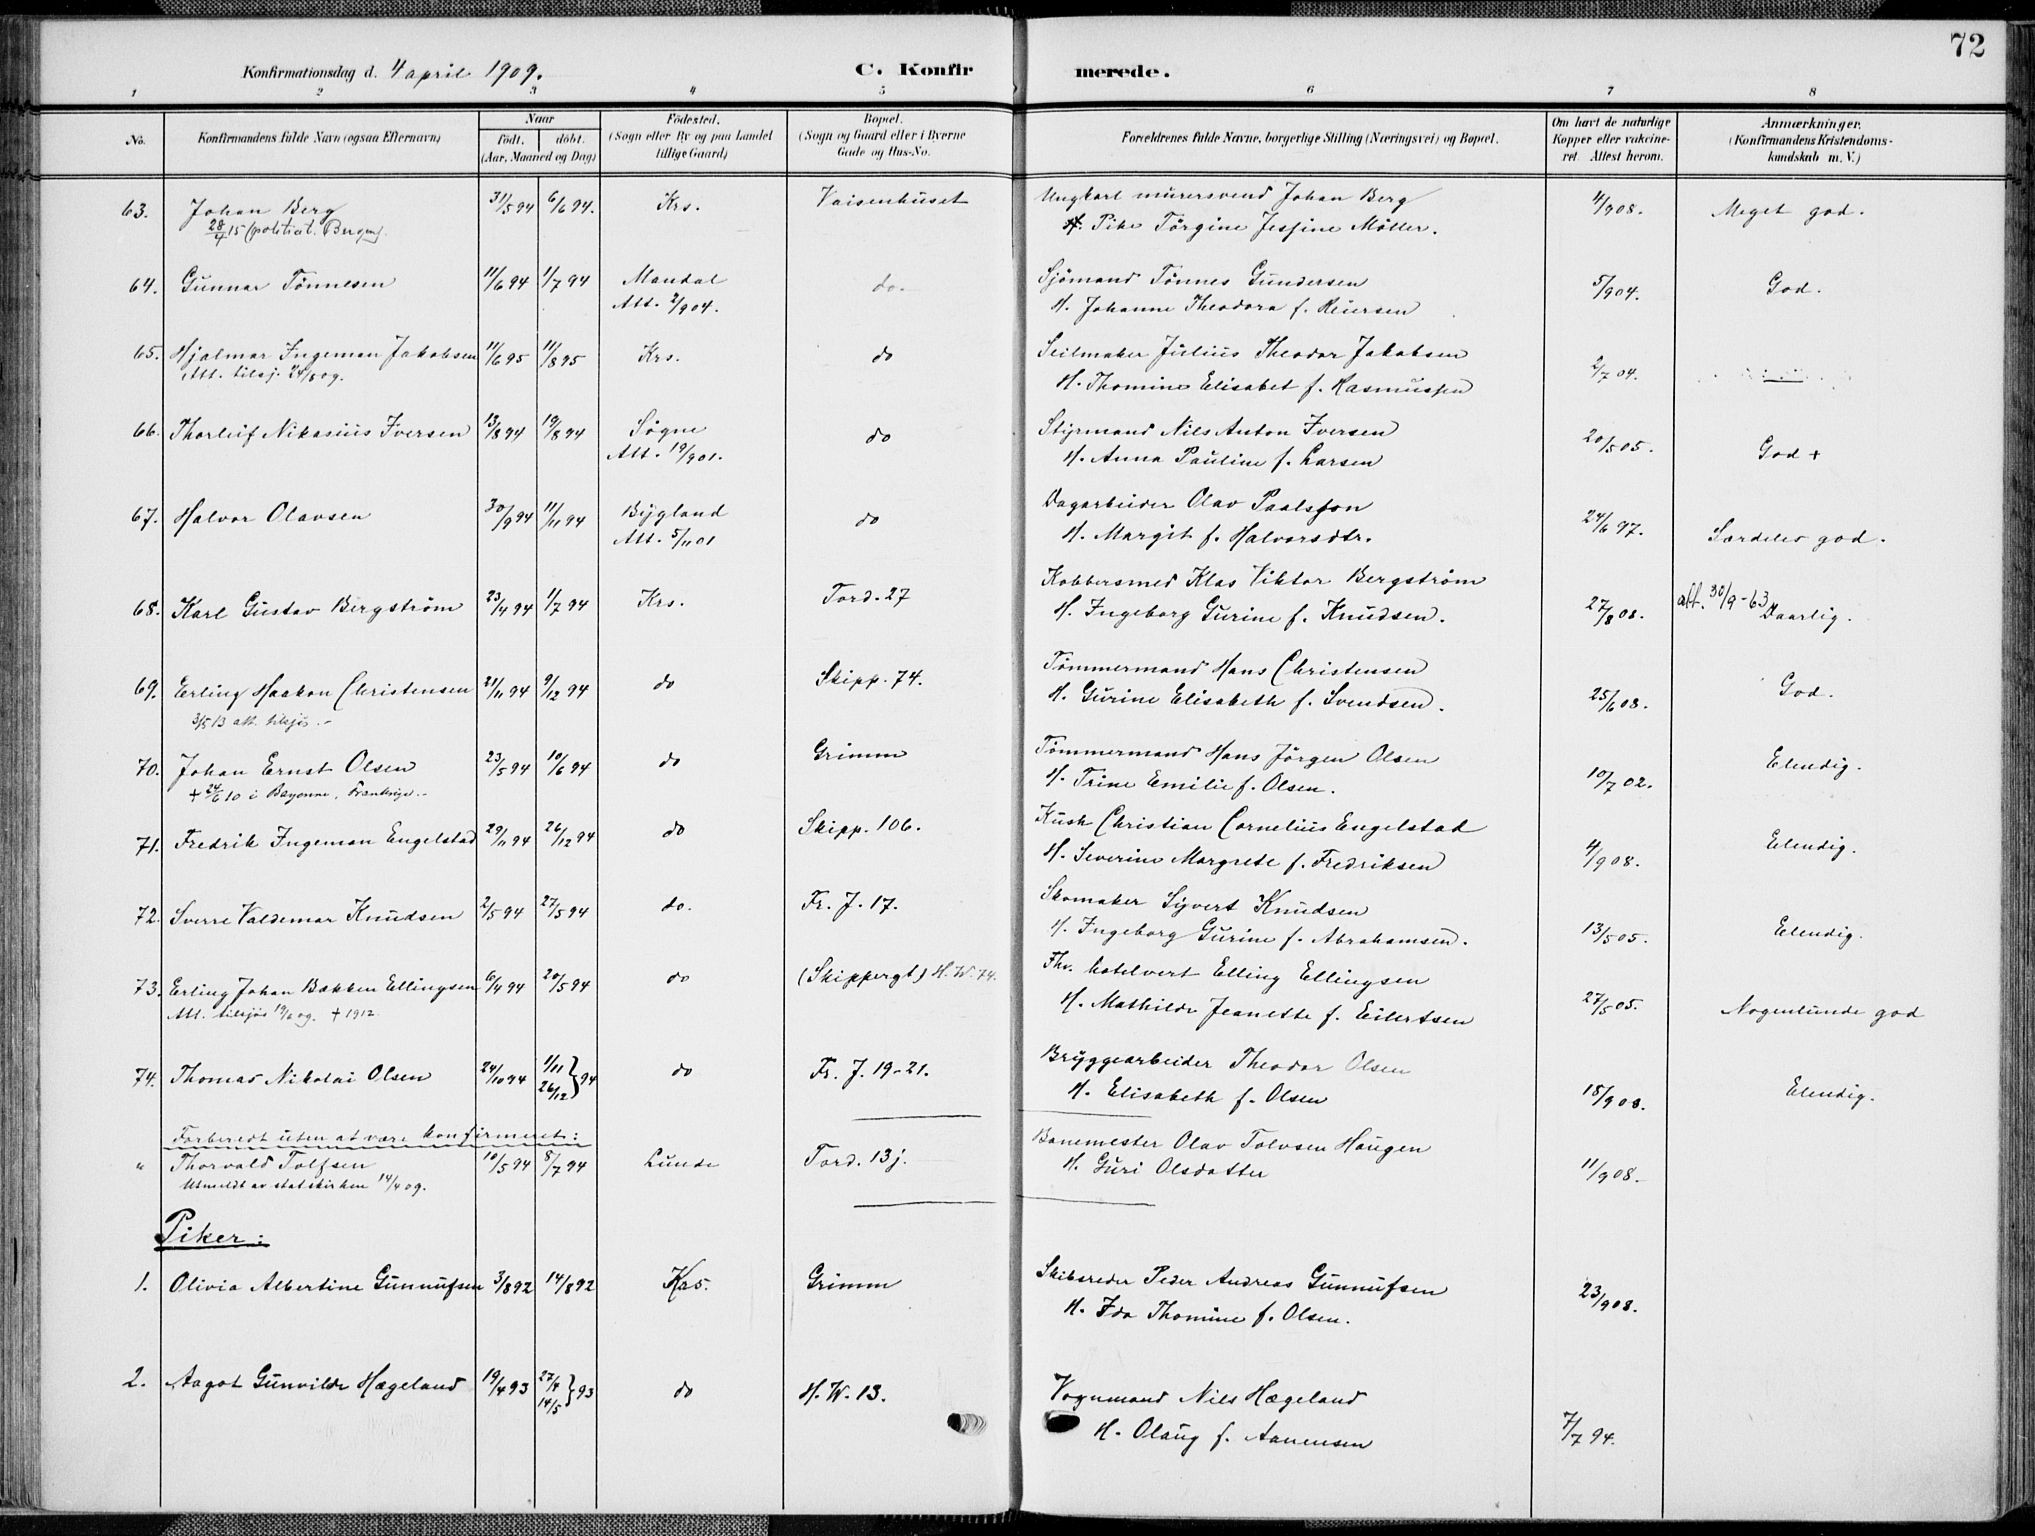 72
Konfirmationsdag d. 4 april 1909. C. Konfirmerede.
1 2 3 4 5 6 7 8
No. Konfirmandens fulde Navn (ogsaa Efternavn) Naar født. døbt. (Aar, Maaned og Dag) Fødested. (Sogn eller By og paa Landet tillige Gaard) Bopæl. (Sogn og Gaard eller i Byerne Gade og Hus-No. Forældrenes fulde Navne, borgerlige Stilling (Næringsvei) og Bopæl. Om havt de naturlige Kopper eller vakcineret. Attest herom. Anmærkninger. (Konfirmandens Kristendomskundskab m. V.)
63. Johan Berg 31/5 94 6/6 94. Krs. Vaisenhuset Ungkarl murersvend Johan Berg 4/9 08. Meget god.
28/4 15 (politiat. Bergen). Pike Törgine Jessine Möller.
64. Gunnar Tönnesen 11/6 94 1/7 94 Mandal do. Sjömand Tönnes Gundersen 5/9 04. God.
Att. 2/9 04. H. Johanne Theodora f. Reiersen
65. Hjalmar Ingeman Jakobsen 11/6 95 11/8 95 Krs. do Seilmaker Julius Theodor Jakobsen 2/7 04.
Att. tilsj. 24/8 09. H. Thomine Elisabet f. Rasmussen
66. Thorleif Nikasius Iversen 13/8 94 19/8 94 Søgne do Styrmand Nils Anton Iversen 20/5 05. God +
Att. 19/9 01. H. Anna Pauline f. Larsen
67. Halvor Olavsen 30/9 94 11/11 94 Bygland do Dagarbeider Olav Paalsson 24/6 97. Særdeles god.
Att. 5/11 01 H. Margit f. Halvorsdtr.
68. Karl Gustav Bergström 23/4 94 1/7 94 Krs. Tord. 27 Kobbersmed Klas Viktor Bergström 27/8 08. att. 30/9-63 Daarlig.
H. Ingeborg Gurine f. Knudsen.
69. Erling Haakon Christensen 21/11 94 9/12 94 do Skipp. 74. Tömmermand Hans Christensen 25/6 08. God.
3/5 13 att. tilsjös. H. Gurine Elisabeth f. Svendsen.
70. Johan Ernst Olsen 23/5 94 10/6 94 do Grimm Tömmermand Hans Jörgen Olsen 10/7 02. Elendig.
+ 24/6 10 i Bayonne, Frankrige. H. Trine Emilie f. Olsen.
71. Fredrik Ingeman Engelstad 29/11 94 26/12 94 do Skipp. 106. Kusk Christian Cornelius Engelstad 4/9 08. Elendig.
H. Severine Margrete f. Fredriksen
72. Sverre Valdemar Knudsen 2/5 94 27/5 94 do. Fr. J. 17. Skomaker Syvert Knudsen 13/5 05. Elendig.
H. Ingeborg Gurine f. Abrahamsen.
73. Erling Johan Bakken Ellingsen 6/4 94 20/5 94 do (Skippergt) H. W. 74. Fhv. hotelvert Elling Ellingsen 27/5 05. Nogenlunde god
Att. tilsjös 19/6 09. + 1912. H. Mathilde Jeanette f. Eilertsen
74. Thomas Nikolai Olsen 24/10 94 1/11 26/12 } 94 do Fr. J. 19-21. Bryggearbeider Theodor Olsen 18/9 08. Elendig.
H. Elisabeth f. Olsen
Forberedt uten at være konfirmeret:
" Thorvald Tolfsen 10/5 94 8/7 94 Lunde Tord. 13 j. Banemester Olav Tolvsen Haugen 11/9 08.
Utmeldt av statskirken 14/4 09. H. Guri Olsdatter
Piker:
1. Olivia Albertine Gunnufsen 3/8 92 14/8 92 Krs. Grimm Skibsreder Peder Andreas Gunnufsen 23/9 08.
H. Ida Thomine f. Olsen.
2. Aagot Gunvilde Hægeland 19/4 93 27/4 14/5 } 93 do H. W. 13. Vognmand Nils Hægeland 7/7 94.
H. Olaug f. Aanensen